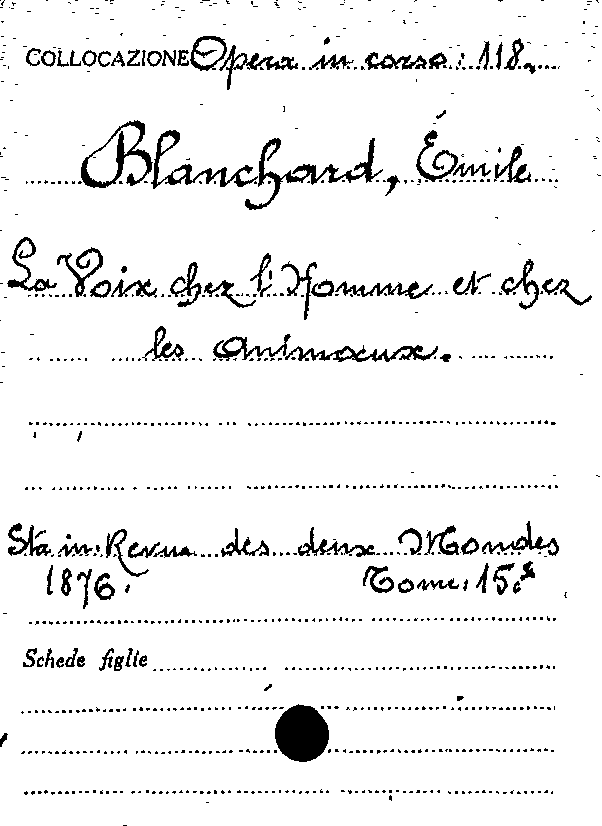 COLLOCAZIONE Opera in corso: 118.
Blanchard, Émile
La Voix chez l'Homme et chez
les animaux.
Sta in: Revue des deux Mondes
1876. Tome: 15.e
Schede figlie